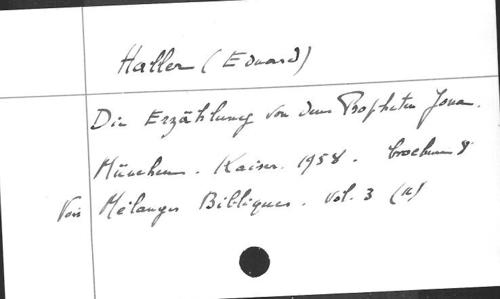 Haller (Eduard)
Die Erzählung von dem Propheten Jona.
München. Kaiser. 1958. broché in 8
Vois Mélanges Bibliques. vol. 3 (12)